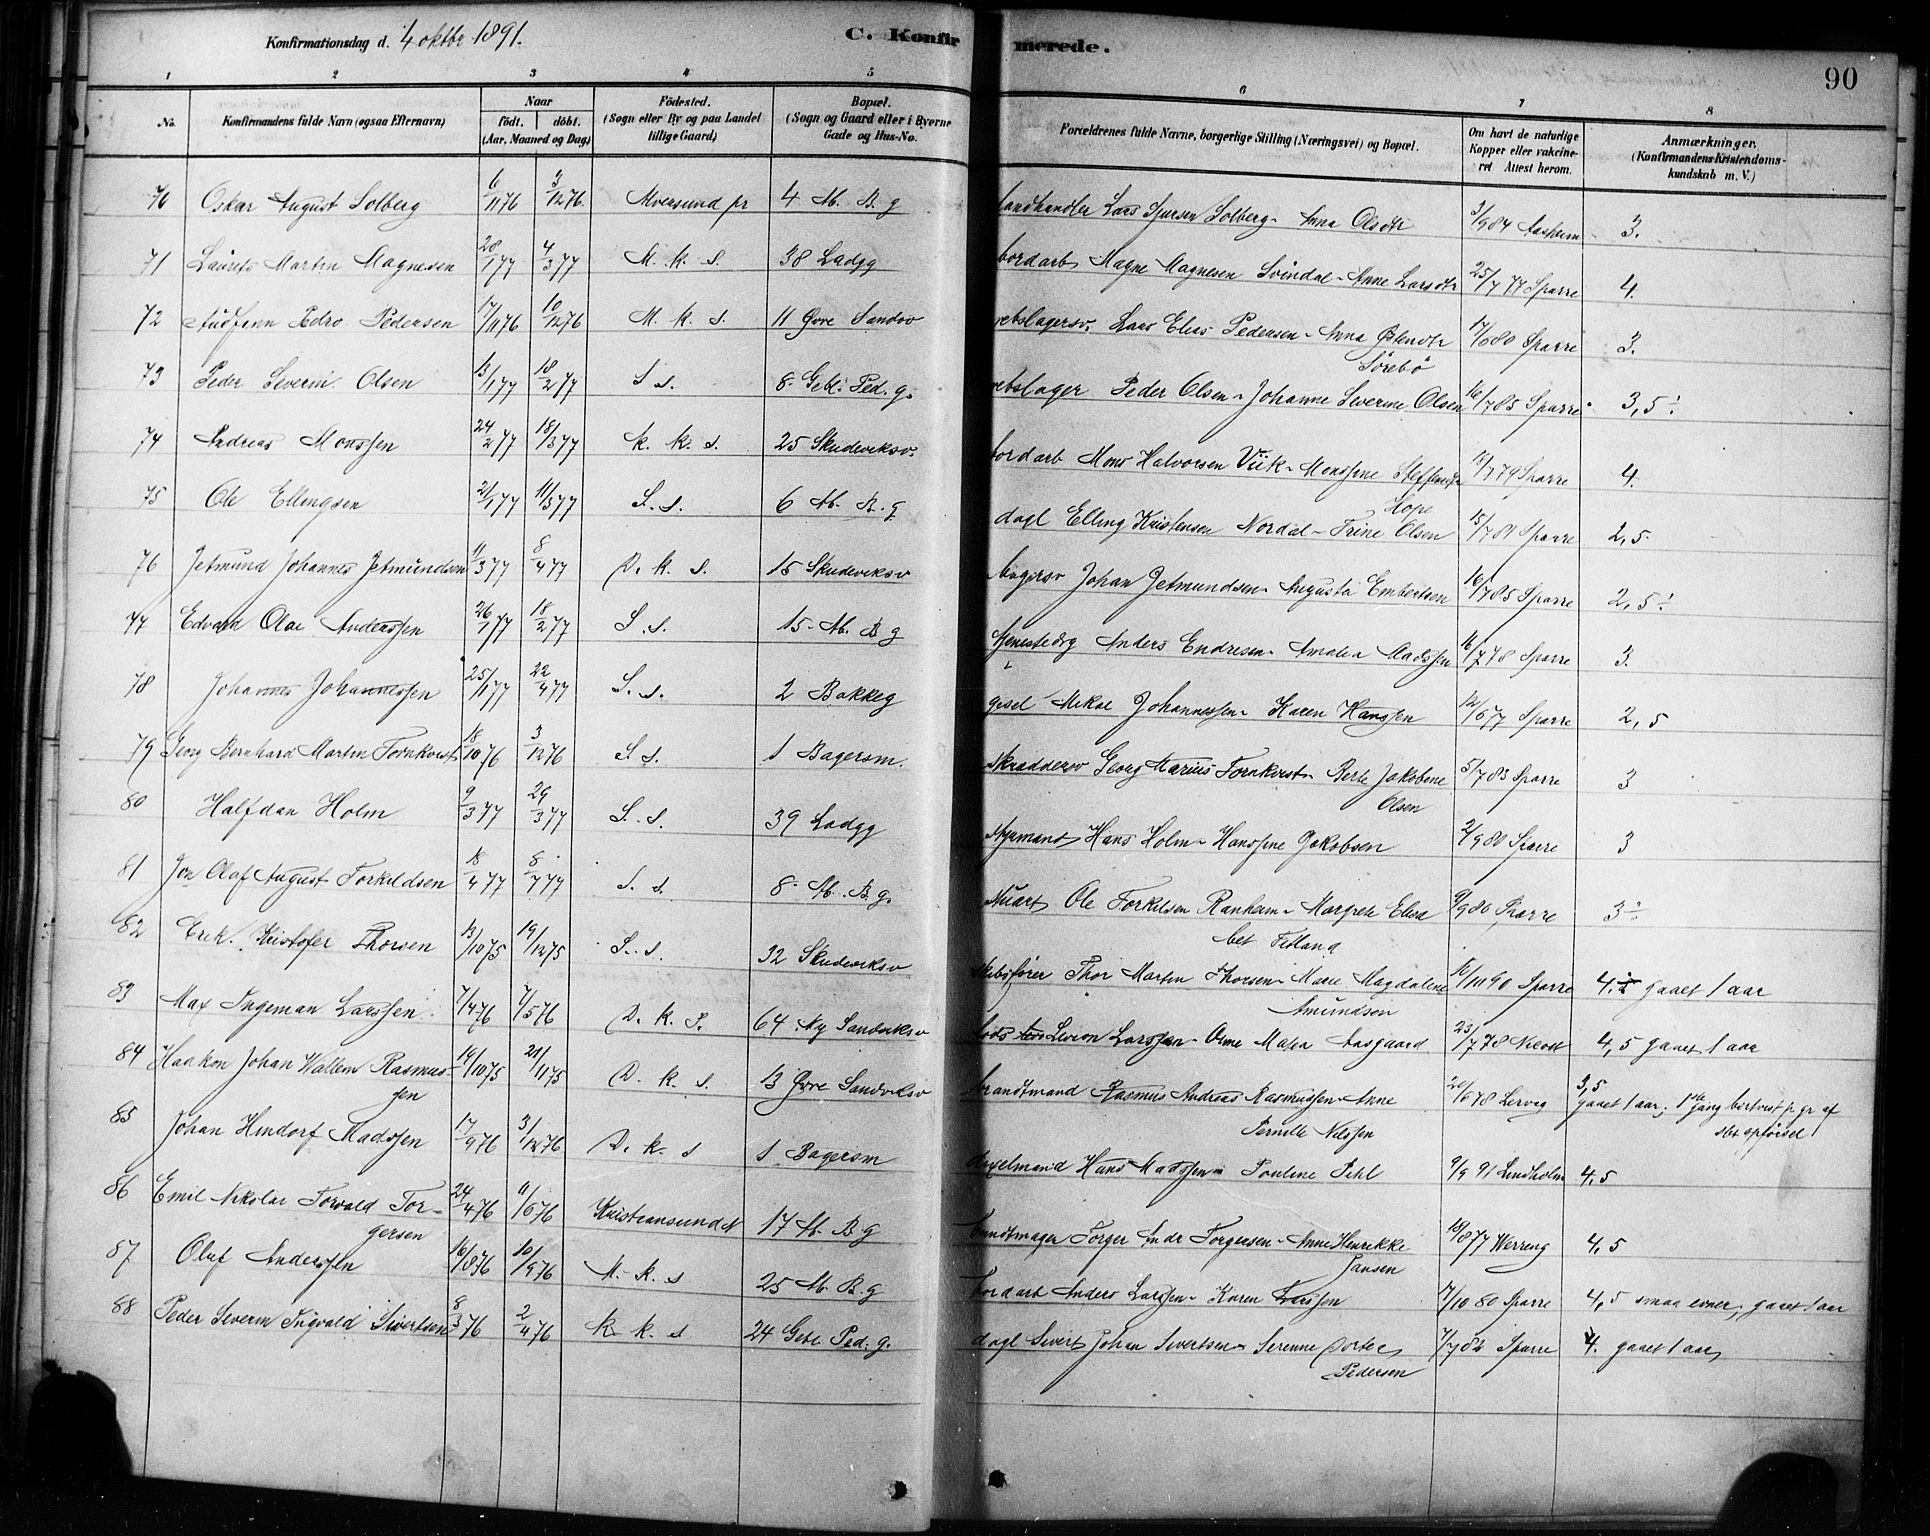 Konfirmationsdag d. 4 oktbr 1891.
C. Konfirmerede.
90
1 2 3 4 5 6 7 8
No. Konfirmandens fulde Navn (ogsaa Efternavn) Naar födt. döbt. (Aar, Maaned og Dag) Födested. (Sogn eller By og paa Landet tillige Gaard) Bopæl. (Sogn og Gaard eller i Byerne Gade og Hus-No. Forældrenes fulde Navne, borgerlige Stilling (Næringsvei) og Bopæl. Om havt de naturlige Kopper eller vakcineret Attest herom. Anmærkninger. (Konfirmandens Kristendomskundskab m. V.)
70 Oskar August Solberg 6/11 76 3/12 76 4 M. B. g Landhandler Lars Solberg - Anna Olsdtr 3/9 84 Aasheim 3.
71 Laurits Martin Magnesen 28/1 77 4/3 77 M. k. s. 38 Ladgg bordarb Magne Magnesen Svindal - Anne Larsdtr 25/7 77 Sparre 4.
72 Pedro Pedersen 17/11 76 10/12 76 M. k. s. 11 Øvre Sandvv Lars Elias Pedersen - Anna Østendtr Sörebö 17/6 80 Sparre 3.
73 Peder Severin Olsen 13/1 77 18/2 77 S s. 8 Gebl. Ped. g. rebslager Peder Olsen - Johanne Severine Olsen 16/7 85 Sparre 3,5
74 Andreas Monssen 24/2 77 18/3 77 k. k. s. 25 Skudeviksv. bordarb Mons Halvorsen Viik - Monssine Steffensdtr Hope 11/7 79 Sparre 4.
75 Ole Ellingsen 21/1 77 11/3 77 S. s. 6 M. B. g dagl Elling Kristensen Nordal - Trine Olsen 15/7 81 Sparre 2,5
76 Jetmund Johannes Jetmundsen 11/3 77 8/4 77 D. k. s. 15 Skudeviksv Johan Jetmundsen - Augusta Embertsen 16/7 85 Sparre 2,5
77 Edvard Olai Anderssen 26/1 77 18/2 77 S. s. 15 M. B g Anders Endresen - Amalia Madssen 16/7 78 Sparre 3.
78 Johannes Johannessen 25/1 77 22/4 77 S. s. 2 Bakkeg Mikal Johannessen - Karen Hanssen 12/6 77 Sparre 2,5
79 Georg Bernhard Martin Tornkvist 18/10 76 3/12 76 S s. 1 Bagersm. Skrædersv Georg Marius Tornkvist - Berte Jakobine Olsen 5/7 83 Sparre 3
80 Halfdan Holm 9/3 77 29/3 77 S. s. 39 Ladgg Hans Holm - Hanssine Jakobsen 2/9 80 Sparre 3
81 Jon Olaf August Torkildsen 18/4 77 8/7 77 S. s. 8 M. B. g. Ole Torkilsen Ranheim - Margrete Elisabet Fitland 9/9 80 Sparre 3
82 Erik Kristofer Thorsen 13/10 75 19/12 75 S. s. 32 Skudeviksv skibsfører Thor Martin Thorsen - Marie Magdalene Amundsen 16/10 90 Sparre 4. gaaet 1 aar
83 Max Ingeman Larssen 7/4 76 7/5 76 D. k. s. 64 Ny Sandviksv Lods Sevrin Larssen - Oline Maria Aasgaard 23/7 78 4,5 gaaet 1 aar
84 Haakon Johan Wallem Rasmussen 19/10 75 21/11 75 D. k. s. 13 Øvre Sandviksv brandtmand Rasmus Andreas Rasmussen - Anne Pernille Nilssen 20/6 78 Lervig 3,5 gaaet 1 aar; 1ste gang bortvist p. gr af slet opförsel
85 Johan Hindorf Madssen 17/9 76 31/12 76 D. k. s 1 Bagersm Hans Madssen - Pauline Pihl 9/9 91 Lindholm 4,5
86 Emil Nikolai Torvald Torgersen 24/4 76 11/6 76 Kristiansund N 17 M. B g buntmager Torger Andr Torgersen - Anne Henrikke Jansen 10/8 77 Werring 4,5
87 Oluf Anderssen 16/8 76 10/9 76 M. k. s 25 M. B. g bordarb Anders Larssen - Karen Larssen 7/10 80 Sparre 4,5 smaa evner, gaaet 1 aar
88 Peder Severin Ingvald Sivertsen 8/3 76 2/4 76 k. k. s 24 Gebl Ped. g. dagl Sivert Johan Sivertsen - Serenne Dortea Pedersen 7/7 82 Sparre 4. gaaet 1 aar